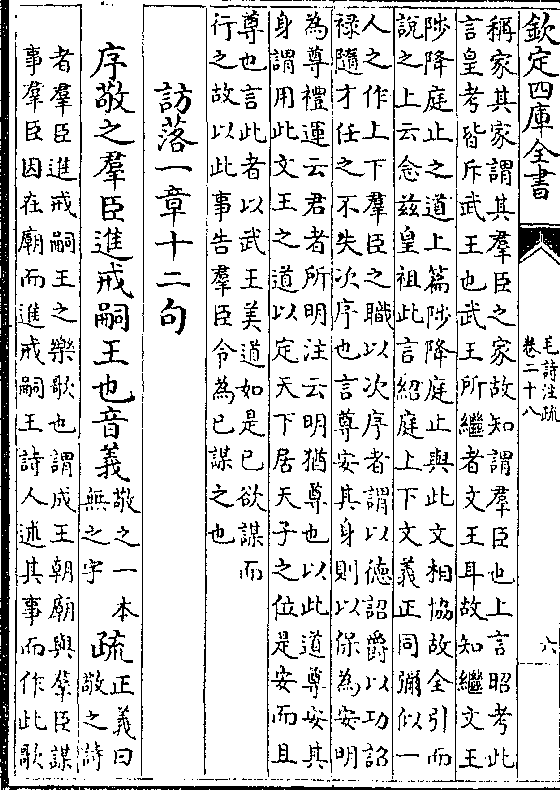 欽定四庫全書
毛詩注疏
卷二十八
六
稱家其家謂其羣臣之家故知謂羣臣也上言昭考此
言皇考皆斥武王也武王所繼者文王耳故知繼文王
陟降庭止之道上篇陟降庭止與此文相協故全引而
說之上云念兹皇祖此言紹庭上下文義正同彌似一
人之作上下羣臣之職以次序者謂以德詔爵以功詔
禄隨才任之不失次序也言尊安其身則以保為安明
為尊禮運云君者所明注云明猶尊也以此道尊安其
身謂用此文王之道以定天下居天子之位是安而且
尊也言此者以武王美道如是已欲謀而
行之故以此事告羣臣令為已謀之也
訪落一章十二句
序敬之羣臣進戒嗣王也音義
敬之一本
無之字
疏
正義曰
敬之詩
者羣臣進戒嗣王之樂歌也謂成王朝廟與羣臣謀
事羣臣因在廟而進戒嗣王詩人述其事而作此歌